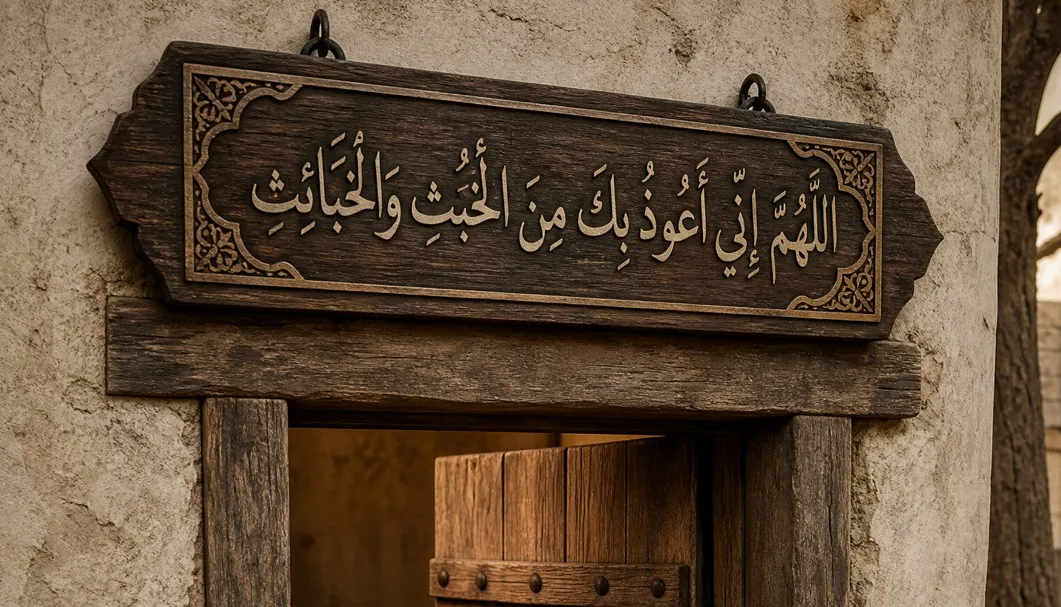 اللَّهُمَّ إِنِّي أَعُوذُ بِكَ مِنَ الْخُبَثِ وَالْخَبَائِثِ